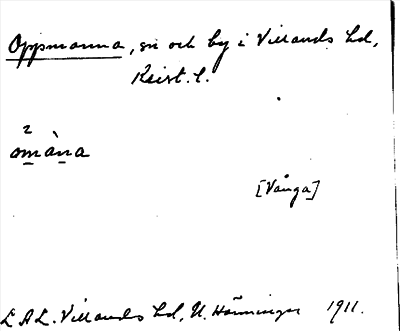 Oppmanna, sn och by i Villands hd,
Krist. l.
2
omàna
[Vånga]
L A L. Villands hd, N. Hänninger 1911.